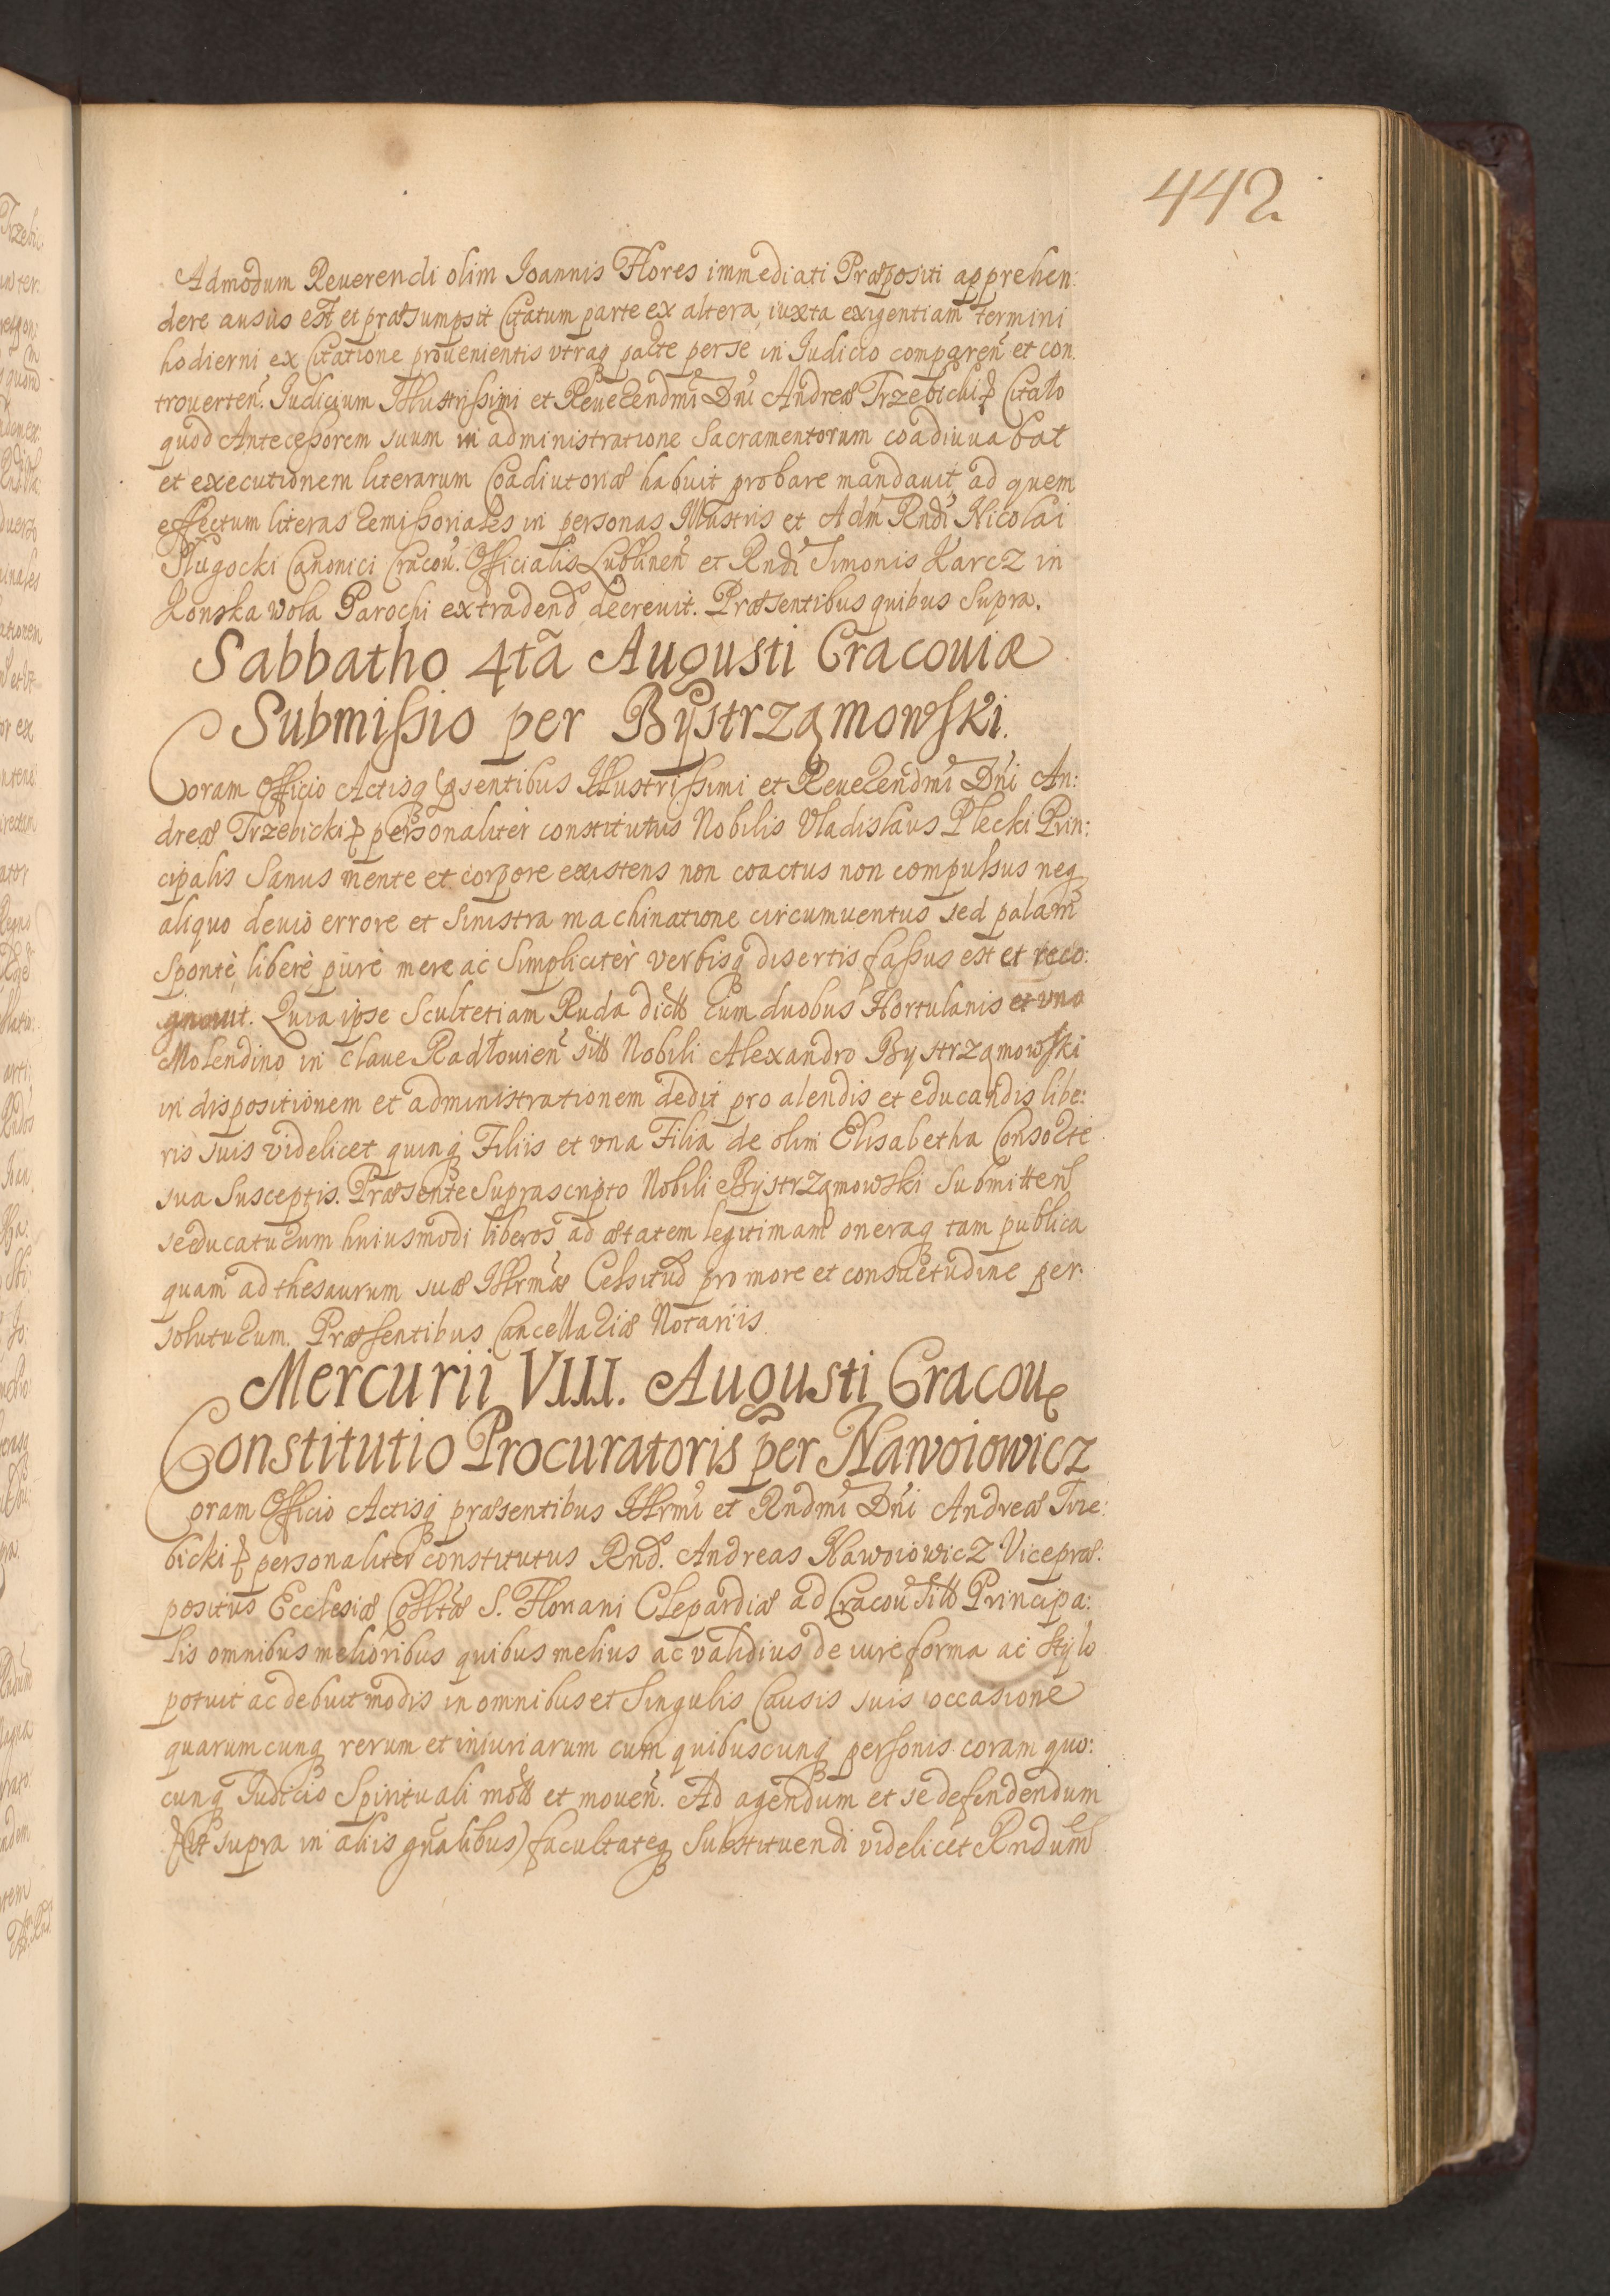 442
Admodum Reuerendi olim Joannis Flores immediati Præpositi apprehen:
dere ausus est et præsumpsit Citatum parte ex altera, iuxta exigentiam termini
hodierni ex Citatione prouenientis vtraq parte per se in Judicio comparen et con
trouerten. Judicium Illustrissimi et Reuerendmi Dni Andreæ Trzebicki Citato
quod Antecessorem suum in administratione Sacramentorum coadiuuabat
et executionem literarum Coadiutoriæ habuit probare mandauit, ad quem
effectum literas remissoriales in personas Illustris et Adm Rndi Nicolai
Slugocki Canonici Cracou. Officialis Lublinen et Rndi Simonis Karcz in
Konska wola Parochi extradend decreuit. Præsentibus quibus Supra.
Sabbatho 4ta Augusti Cracouiæ
Submissio per Bystrzamowski.
Coram Officio Actisq psentibus Illustrissimi et Reuerendmi Dni An:
dreæ Trzebicki personaliter constitutus Nobilis Vladislaus Plecki Prin:
cipalis Sanus mente et corpore existens non coactus non compulsus neq
aliquo deuio errore et Sinistra machinatione circumuentus sed palam
Sponte, libere pure mere ac Simpliciter verbisq disertis fassus est et reco:
gnouit. Quia ipse Scultetiam Ruda dict cum duobus Hortulanis et vno
Molendino in Claue Radłouien sit Nobili Alexandro Bystrzamowski
in dispositionem et administrationem dedit pro alendis et educandis libe:
ris suis videlicet quinq Filiis et vna Filia de olim Elisabetha Consorte
sua Susceptis. Præsente Suprascripto Nobili Bystrzamowski Submitten
se educaturum huiusmodi liberos ad ætatem legitimam oneraq tam publica
quam ad thesaurum suæ Illrmæ Celsitud pro more et consuetudine per:
soluturum. Præsentibus Cancellariæ Notariis
Mercurii VIII. Augusti Cracouę
Constitutio Procuratoris per Nawoiowicz
Coram Officio Actisq præsentibus Illrmi et Rndmi Dni Andreæ Trze:
bicki personaliter constitutus Rnd. Andreas Nawoiowicz Vicepræ:
positus Ecclesiæ Colltæ S. Floriani Clepardiæ ad Cracou sit Principa:
lis omnibus melioribus quibus melius ac validius de iure forma ac Stylo
potuit ac debuit modis in omnibus et Singulis Causis suis occasione
quarumcunq rerum et iniuriarum cum quibuscunq personis coram quo:
cunq Judicio Spirituali mot et mouen. Ad agendum et se defendendum
(Ut supra in aliis gnalibus) facultateq Substituendi videlicet Rndum